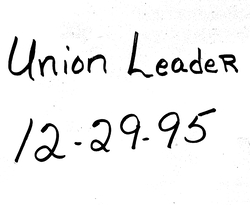 Union Leader
12-29-95